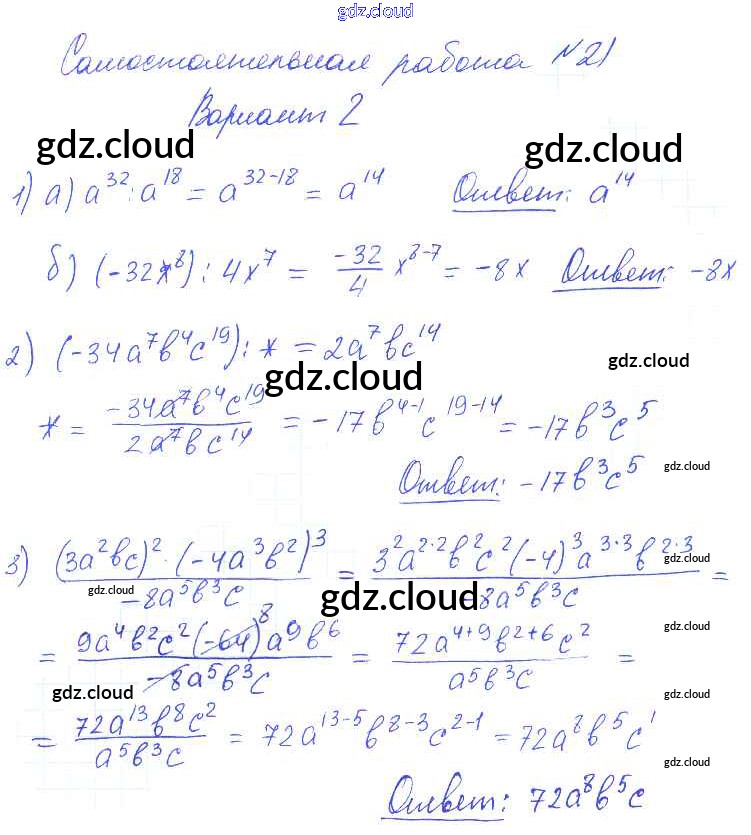 gdz.cloud
Самостоятельная работа №21
Вариант 2
gdz.cloud gdz.cloud
1) а) a³²:a¹⁸ = a³²⁻¹⁸ = a¹⁴ Ответ: a¹⁴
б) (-32x⁸) : 4x⁷ = -32/4 x⁸⁻⁷ = -8x Ответ: -8x
2) (-34a⁷b⁴c¹⁹) : * = 2a⁷bc¹⁴
gdz.cloud gdz.cloud
* = -34a⁷b⁴c¹⁹ / 2a⁷bc¹⁴ = -17b⁴⁻¹c¹⁹⁻¹⁴ = -17b³c⁵
Ответ: -17b³c⁵ gdz.cloud
3) (3a²bc)² · (-4a³b²)³ / -8a⁵b³c = 3²a²·²b²c²(-4)³a³·³b²·³ / -8a⁵b³c =
gdz.cloud gdz.cloud gdz.cloud
= 9a⁴b²c²(-64)⁸a⁹b⁶ / -8a⁵b³c = 72a⁴⁺⁹b²⁺⁶c² / a⁵b³c =
gdz.cloud
gdz.cloud gdz.cloud
= 72a¹³b⁸c² / a⁵b³c = 72a¹³⁻⁵b⁸⁻³c²⁻¹ = 72a⁸b⁵c¹
gdz.cloud
Ответ: 72a⁸b⁵c
gdz.cloud